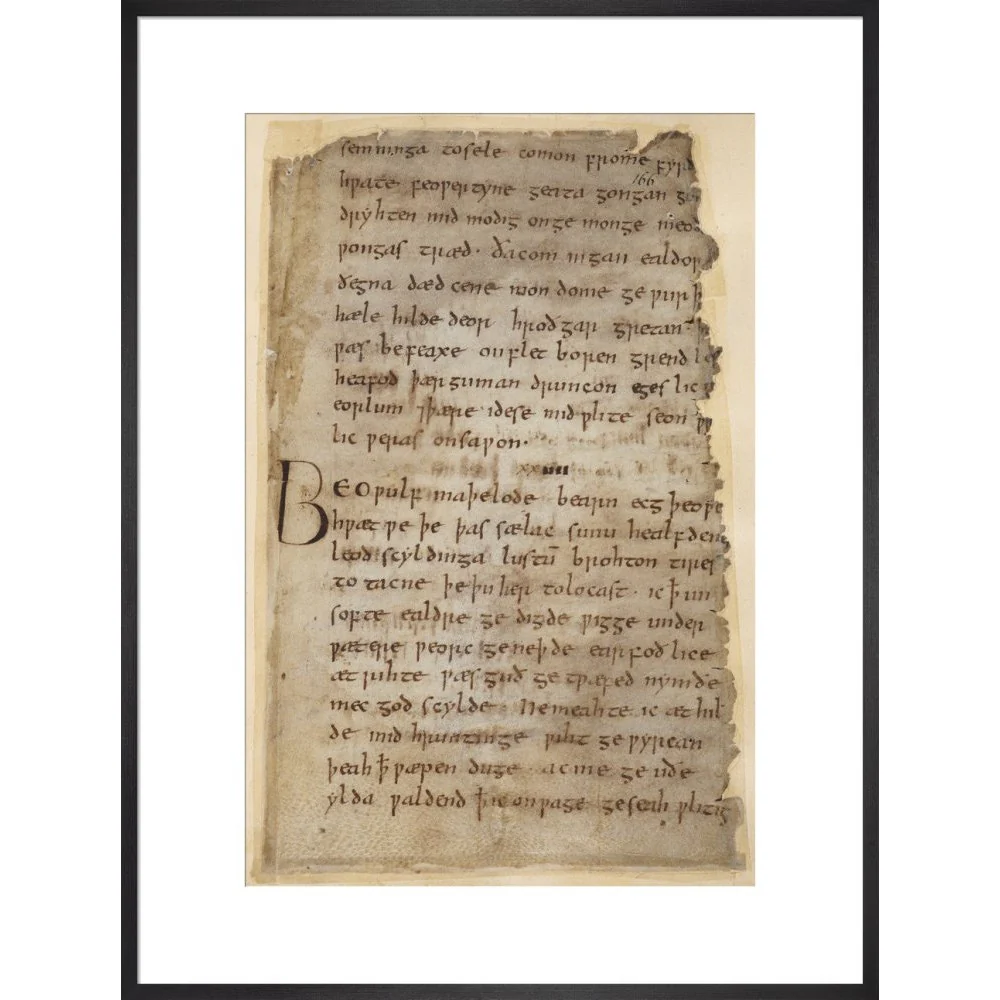 semninga tosele comon frome fyrd
166
hƿate feoƿertyne geata gongan
dryhten mid modig onge monge meo
ƿongas træd · ðacom ingan ealdor
ðegna dæd cene mon dome ge ƿurþ
hæle hilde deor hroðgar gretan ·
ƿæs be feaxe onflet boren grend
heafod þær guman druncon egeslic
eorlum ⁊þære idese mid ƿlite seon
lic ƿeras onsaƿon ·
xxiiii
BEOǷulf maþelode bearn ecgþeoƿe
hƿæt ƿe þe þas sælac sunu healfden
leod scyldinga lustū brohton tires
to tacne þe þu her tolocast · ic ꝥ un
softe ealdre ge digde ƿigge under
ƿætere ƿeorc ge neþde earfoð lice
æt rihte ƿæs guð ge tƿæfed nymðe
mec god scylde · Ne meahte ic æt hil
de mid hruntinge ƿiht ge ƿyrcan
þeah ꝥ ƿæpen duge · ac me ge uðe
ylda ƿaldend ꝥ ic on ƿage ge seah ƿlitig